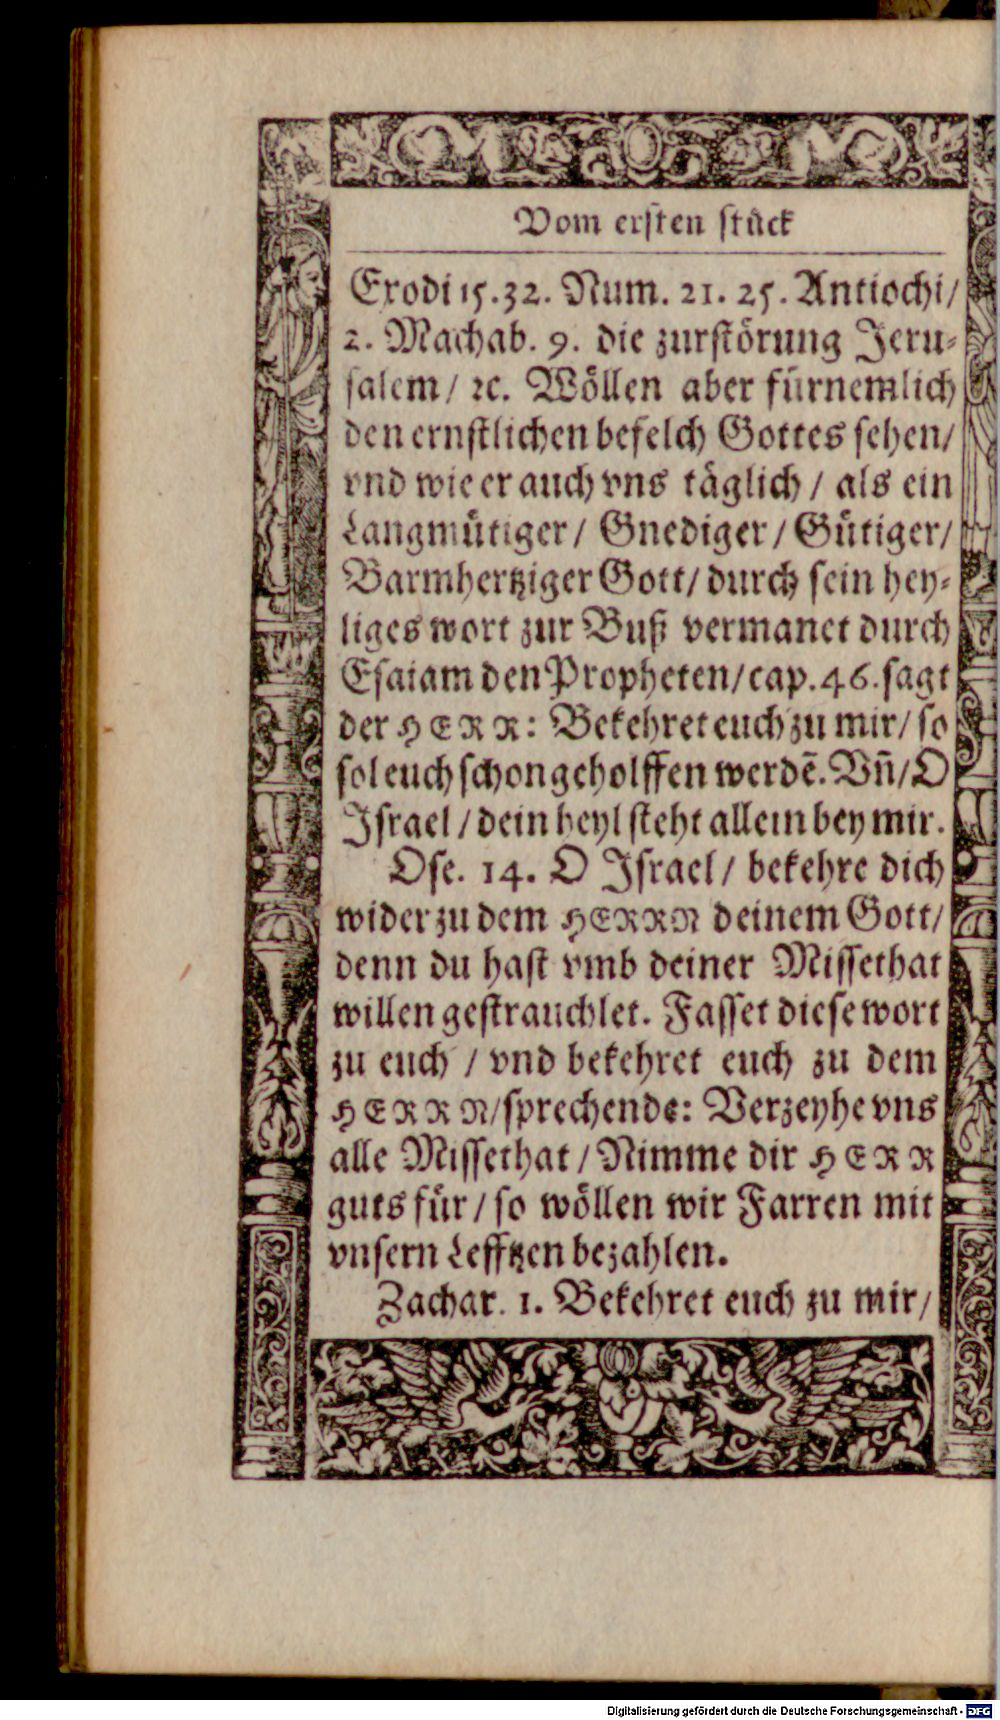 Vom ersten stück
Exodi 15. 32. Num. 21. 25. Antiochi/
2. Machab. 9. die zurstörung Jeru-
salem/ ꝛc. Wöllen aber fürnemlich
den ernstlichen befelch Gottes sehen/
vnd wie er auch vns täglich / als ein
Langmütiger/ Gnediger / Gütiger/
Barmhertziger Gott/ durch sein hey-
liges wort zur Buß vermanet durch
Esaiam den Propheten/ cap. 46. sagt
der HERR: Bekehret euch zu mir/ so
sol euch schon geholffen werdē. Vñ/ O
Israel / dein heyl steht allein bey mir.
Ose. 14. O Israel/ bekehre dich
wider zu dem HERRN deinem Gott/
denn du hast vmb deiner Missethat
willen gestrauchlet. Fasset diese wort
zu euch / vnd bekehret euch zu dem
HERRN/ sprechende: Verzeyhe vns
alle Missethat / Nimme dir HERR
guts für / so wöllen wir Farren mit
vnsern Lefftzen bezahlen.
Zachar. 1. Bekehret euch zu mir/
Digitalisierung gefördert durch die Deutsche Forschungsgemeinschaft - DFG